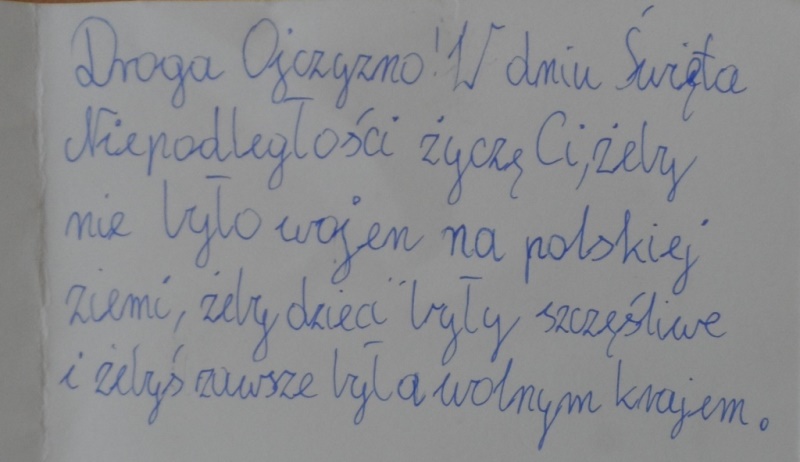 Droga Ojczyzno! W dniu Święta
Niepodległości życzę Ci, żeby
nie było wojen na polskiej
ziemi, żeby dzieci były szczęśliwe
i żebyś zawsze była wolnym krajem.